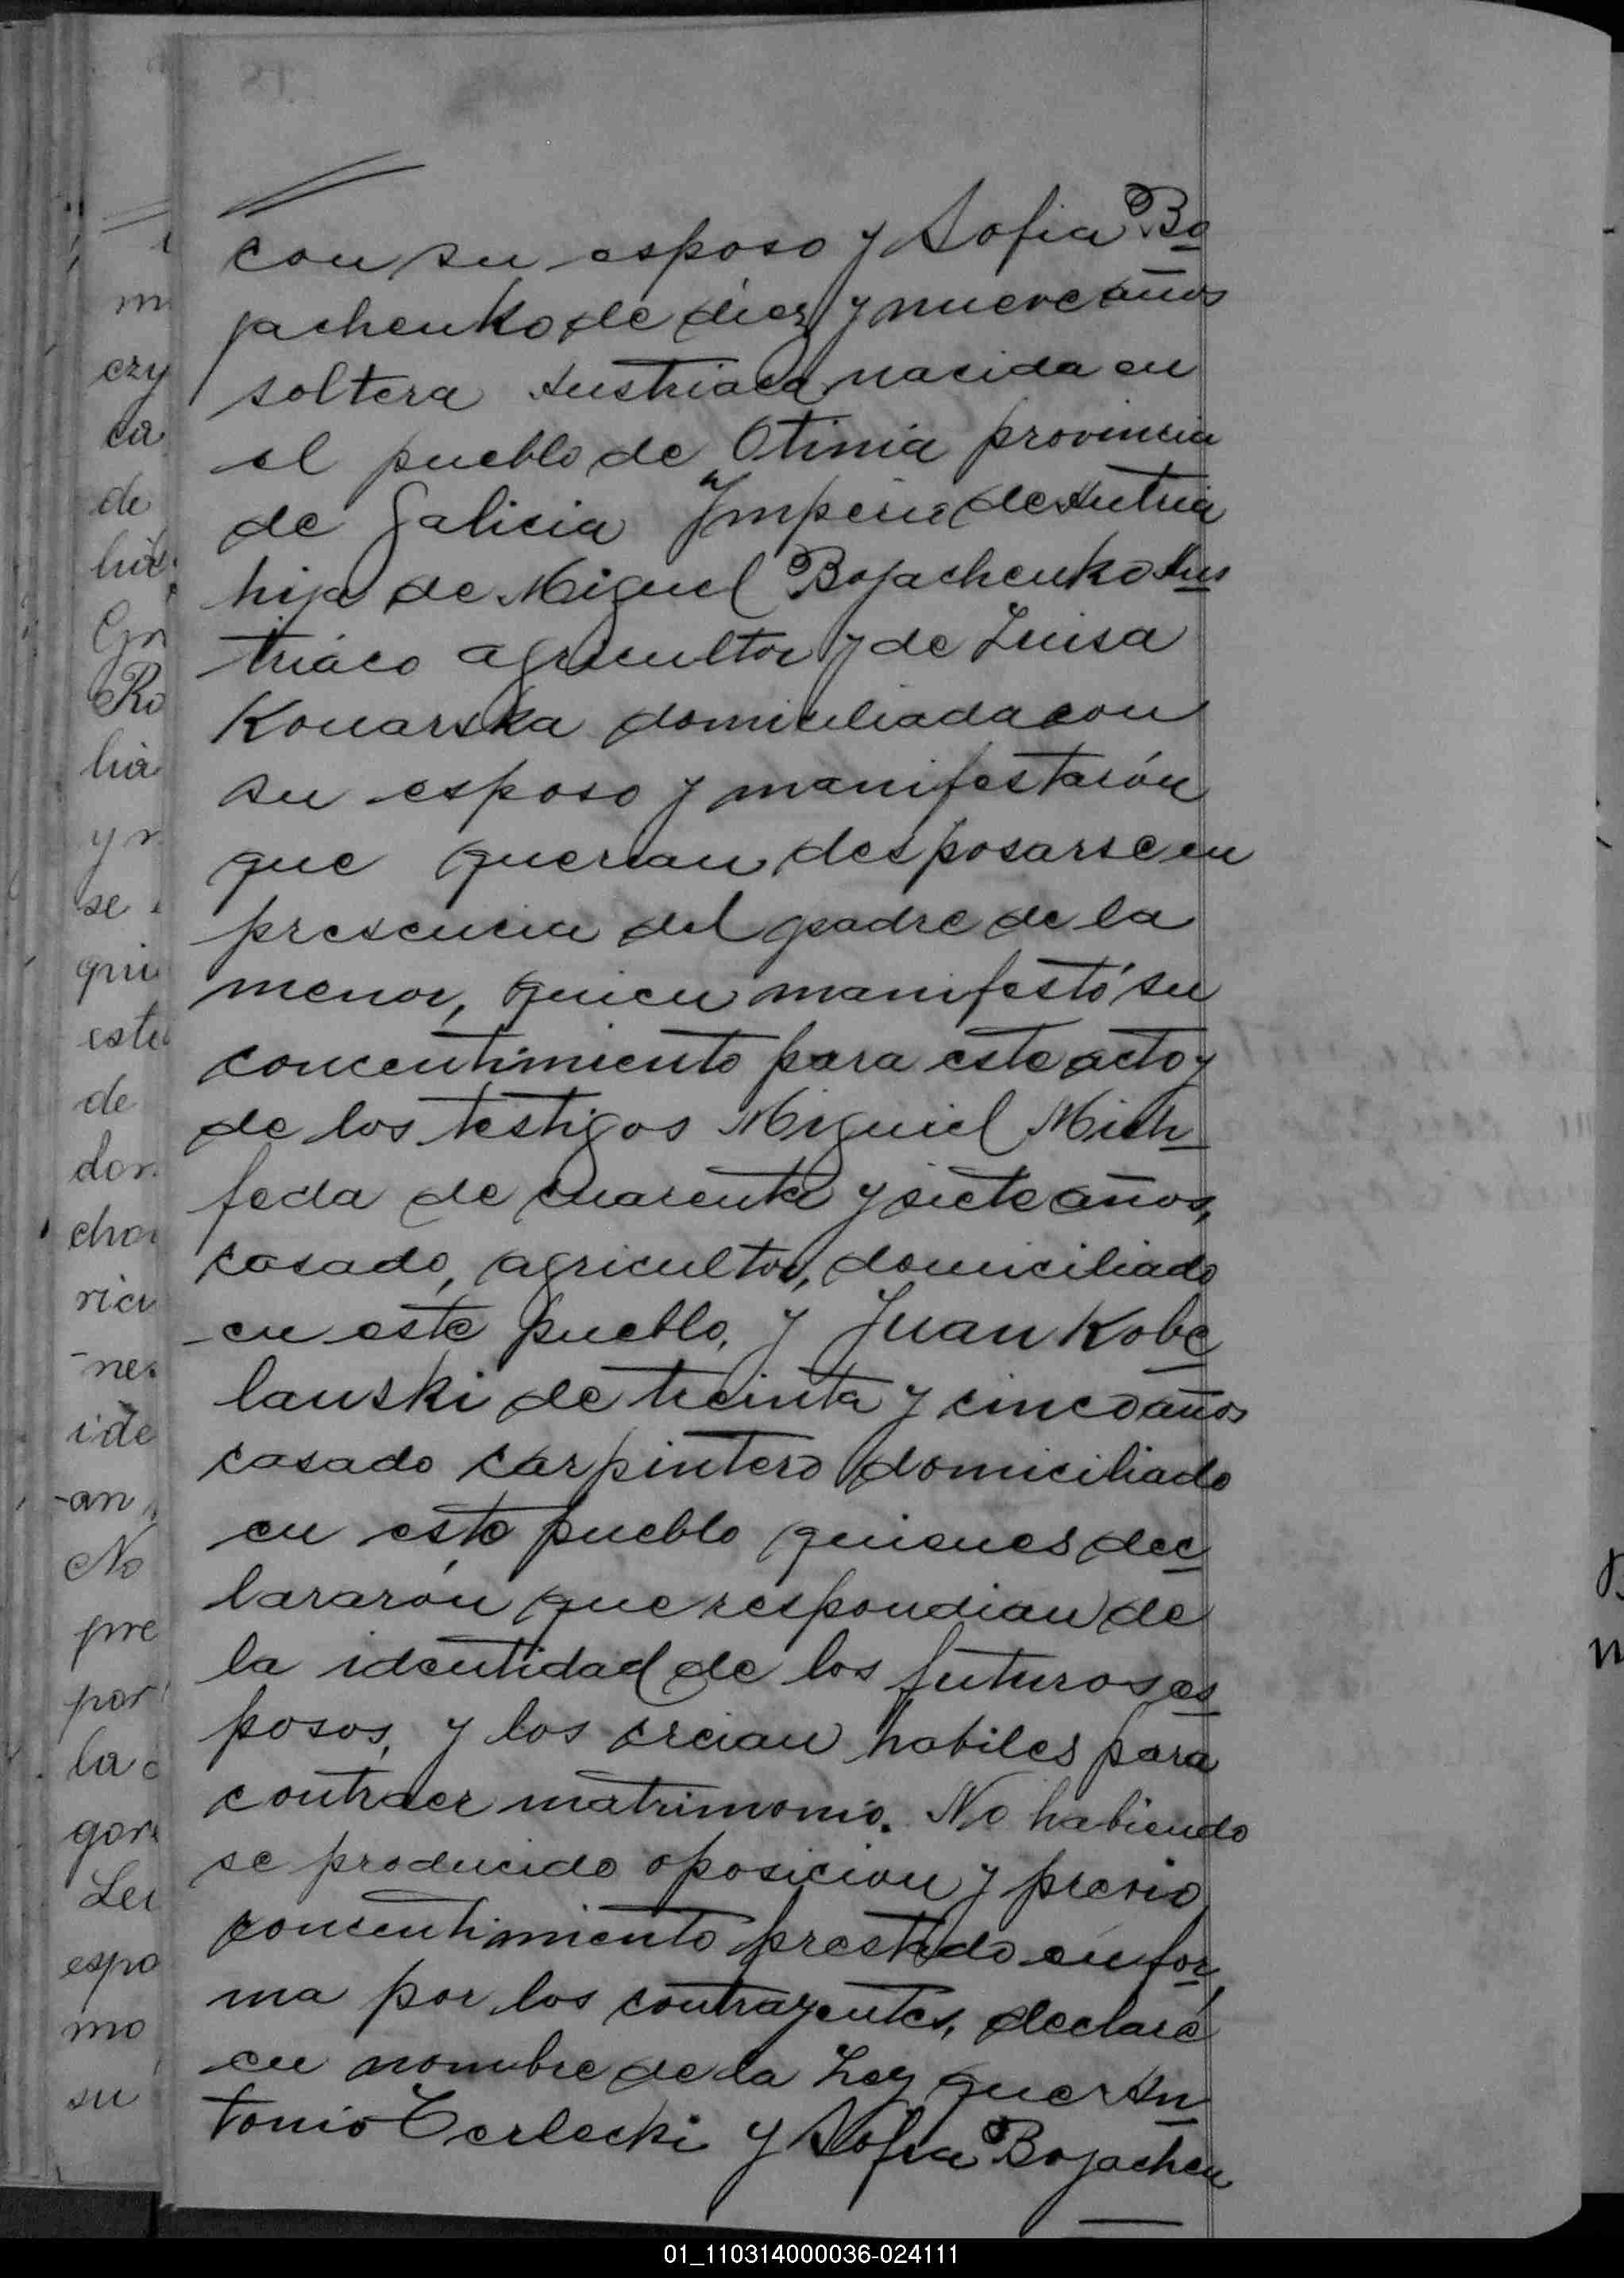 con su esposo y Sofia Bo
jachenko de diez y nueve años
soltera Austriaca nacida en
el pueblo de Otinia provincia
de Galicia Imperio de Autria
hija de Miguel Bojachenko Aus
triaco agricultor y de Luisa
Konarska domiciliada con
su esposo y manifestarón
que querian desposarse en
presencia del padre de la
menor, quien manifestó su
concentimiento para este acto y
de los testigos Miguiel Mich
feda de cuarenta y siete años,
casado, agricultor, domiciliado
en este pueblo, y Juan Kobe
lanski de treinta y cinco años
casado carpintero domiciliado
en este pueblo quienes dec
lararón que respondian de
la identidad de los futuros es
posos, y los creian habiles para
contraer matrimonio. No habiendo
se producido oposicion y previo
concentimiento prestado en for
ma por los contrayentes, declaré
en nombre de la Ley que An
tonio Terlecki y Sofia Bojachen
m
czy
ca
de
Ro
y
se
de
cho
ne
ide
an
No
pre
por
la
Lei
espo
mo
su
01_110314000036-024111